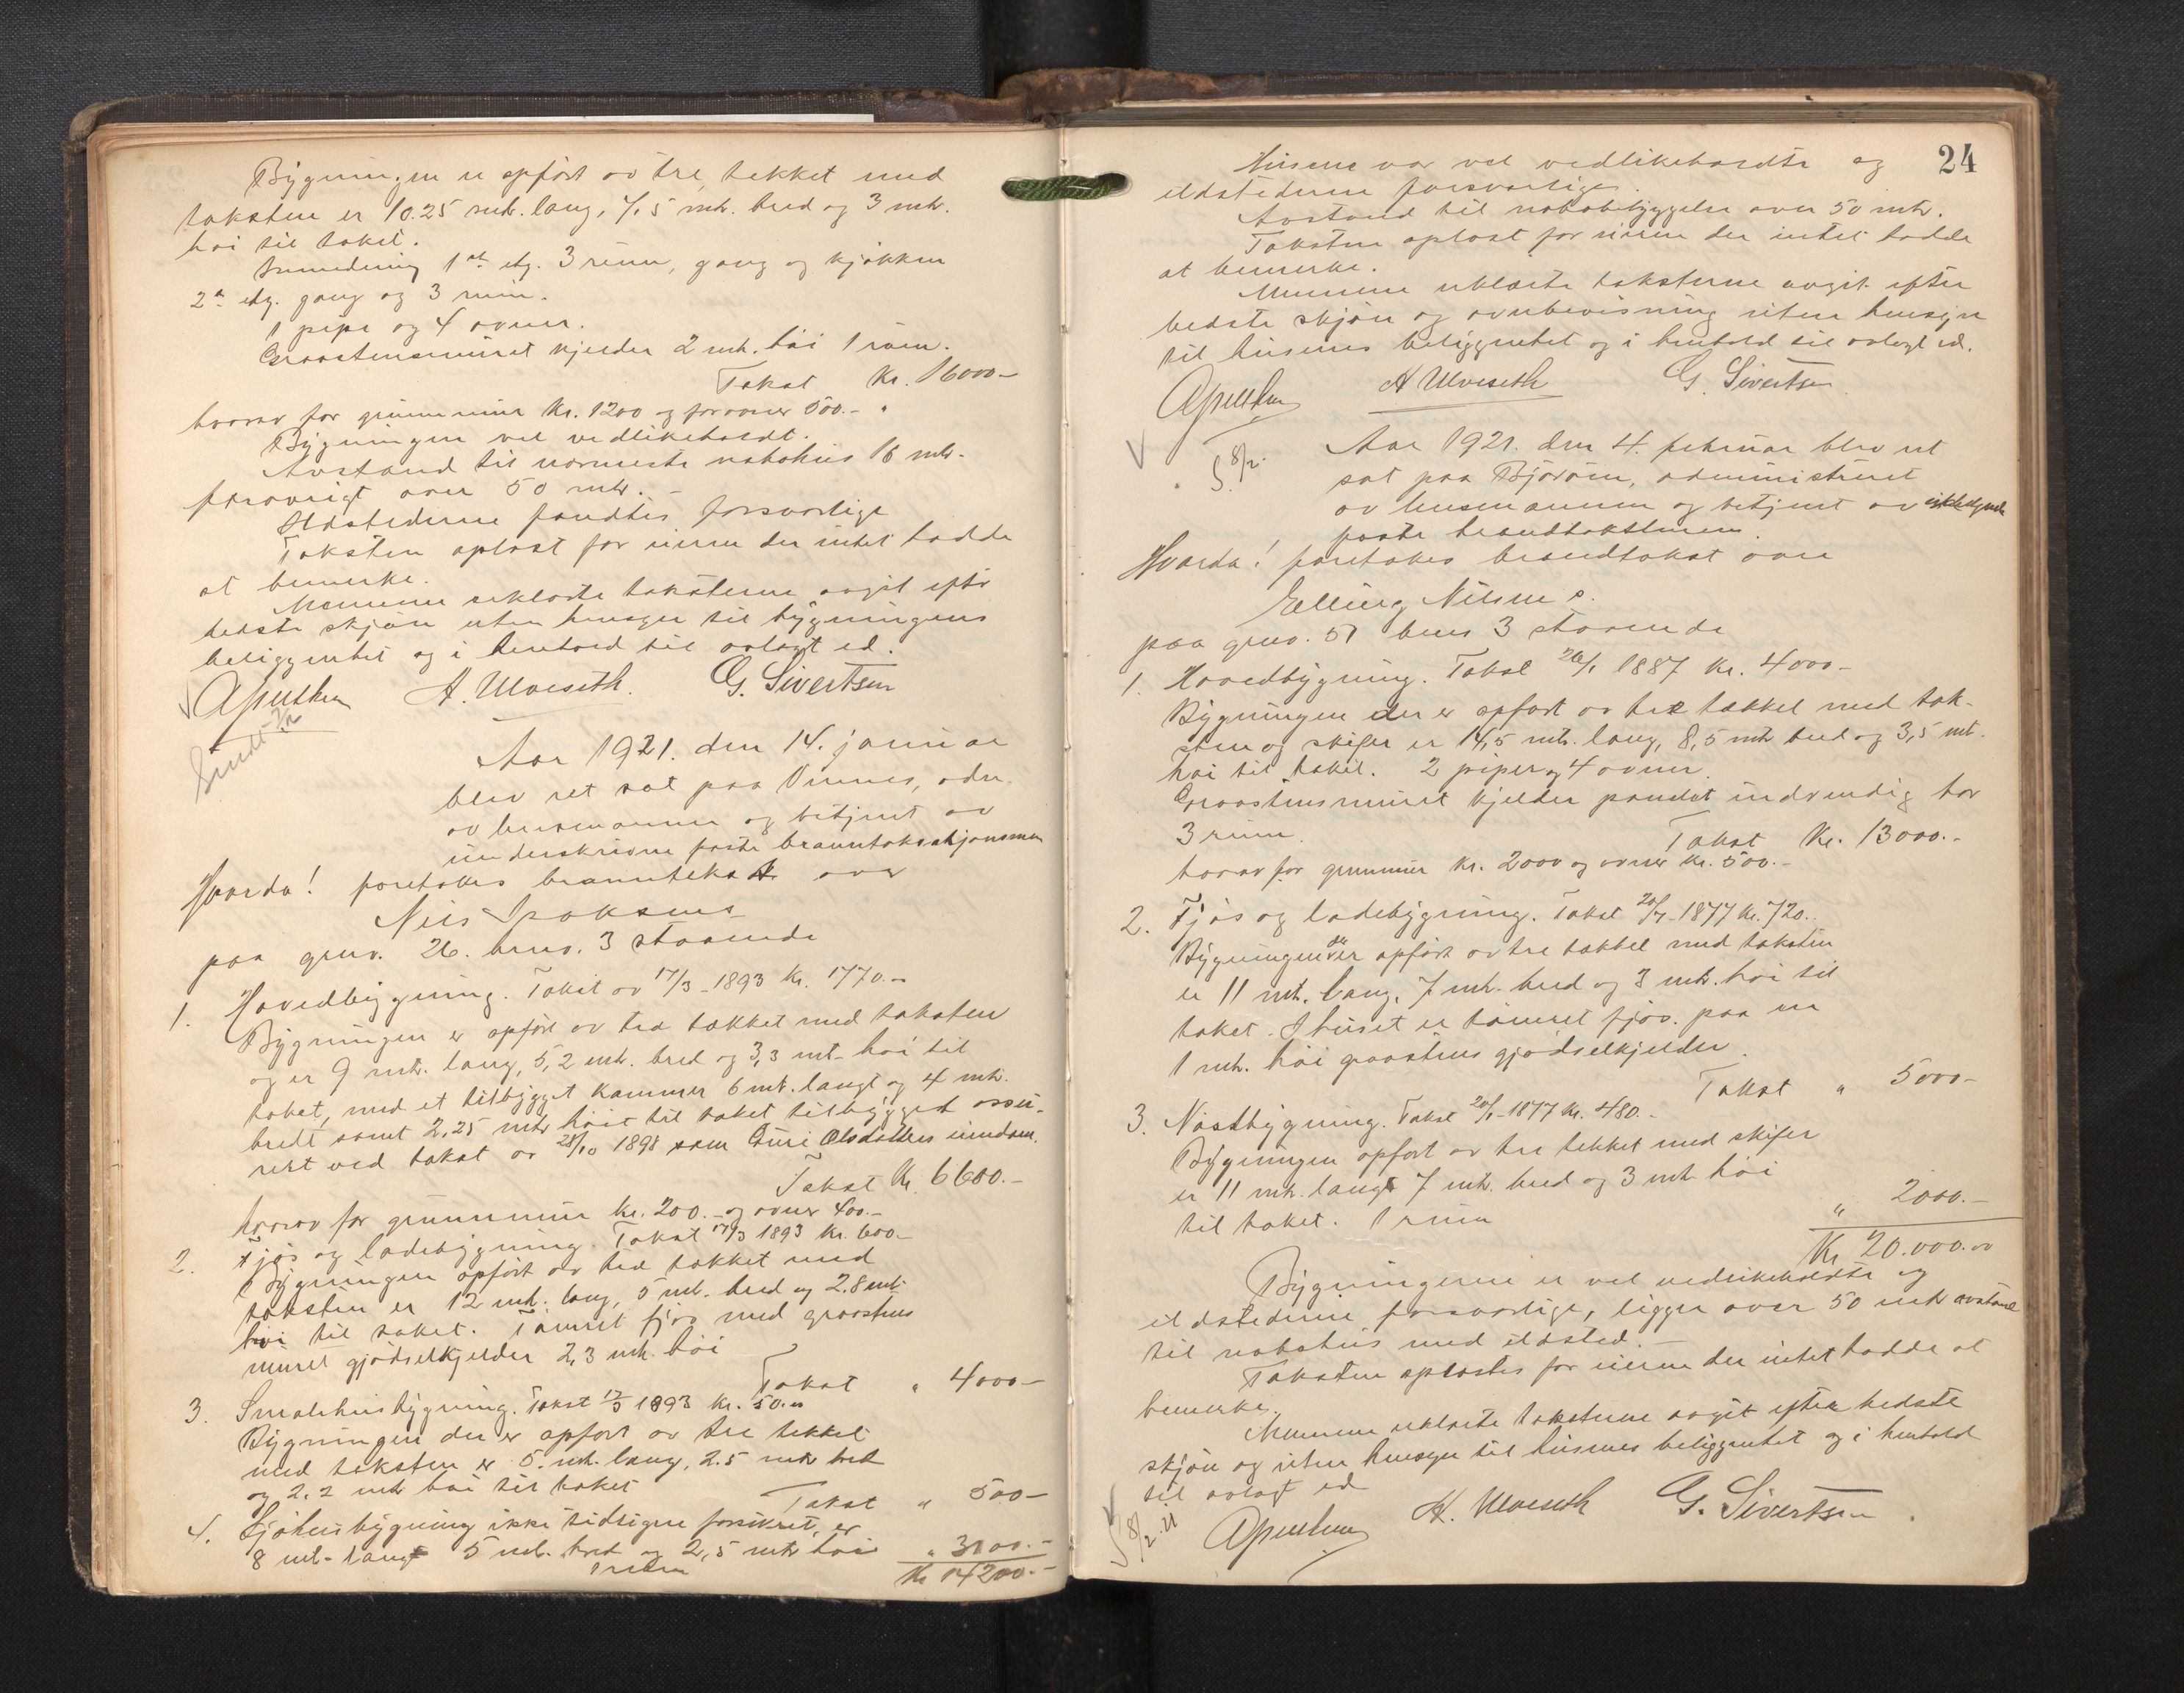 Bygningen er opført av tre, tekket med
taksten er 10.25 mtr. lang, 7,5 mtr. bred og 3 mtr.
høi til taket.
Inredning 1ste etg. 3 rum, gang og kjøkken
2n etg. gang og 3 rum.
1 pipe og 4 ovner.
Graastensmuret kjelder 2 mtr. høi 1 rum.
Takst Kr. 16000-
hvorav for grunmur Kr. 1200 og for ovner 500.- "
Bygningen vel vedlikeholdt.
Avstand til nærmeste nabohus 16 mtr.
forøvrigt over 50 mtr. -
Ildstederne fandtes forsvarlige
Taksten oplæst for eieren der intet hadde
at bemerke.
Mennene erklærte taksterne avgit efter
bedste skjøn uten hensyn til bygningens
beliggenhet og i henhold til avlagt ed.
A. Ulveseth. G. Sivertsen
Aar 1921. den 14. januar
blev ret sat paa Vinnes, adm.
av lensmannen og betjent av
underskrevne faste branntakstskjønsmen
Hvorda! foretokes branntakst over
Nils Isaksens
paa gnr. 26. brnr. 3 staaende
1. Hovedbygning. Takst av 17/3-1893 Kr. 1770.-
Bygningen er opført av tre tækket med taksten
og er 9 mtr. lang, 5,2 mtr. bred og 3,3 mtr. høi til
taket, med et tilbygget kammer 6 mtr. langt og 4 mtr.
bredt samt 2.25 mtr høit til taket tilbygget assu-
rert ved takst av 28/10 1898 som Guri Olsdatters eiendom.
Takst Kr. 6600.-
hvorav for grunnmur kr. 200.- og ovner 400.-
2. Fjøs og ladebygning. Takst 17/3 1893 Kr. 600.-
Bygningen opført av tre tækket med
taksten er 12 mtr. lang, 5 mtr. bred og 2.8 mtr
høi til taket. Tømret fjøs med graastens
muret gjødselkjelder 2,3 mtr. høi
Takst " 4000-
3. Smalehusbygning. Takst 17/3 1893 Kr. 50.-
Bygningen der er opført av tre tekket
med taksten er 5. mtr. lang, 2.5 mtr bred
og 2.2 mtr høi til taket
Takst " 500-
4. Sjøhusbygning ikke tidligere forsikret, er
8 mtr. langt 5 mtr. bred og 2,5 mtr høi " 3100.-
1 rum Kr 14200.-
24
Husene var vel vedlikeholdte og
ildstederne forsvarlige.
Avstand til nabobebyggelse over 50 mtr.
Taksten oplæst for eieren der intet hadde
at bemerke.
Mennene erklærte taksterne avgit efter
bedste skjøn og overbevisning uten hensyn
til husenes beliggenhet og i henhold til avlagt ed.
A Ulveseth G. Sivertsen
Aar 1921. den 4. februar blev ret
S. 8/2.
sat paa Bjørøen, administreret
av lensmannen og betjent av
faste brandtakstmen.
Hvorda! foretokes brandtakst over
Elling Nilsens.
paa gnr. 51 brnr 3 staaende
1. Hovedbygning. Takst 20/1 1887 Kr. 4000-
Bygningen der er opført av tre tækket med tak-
sten og skifer er 14,5 mtr. lang, 8,5 mtr bred og 3,5 mtr.
høi til taket. 2 piper og 4 ovner.
Graastensmuret kjelder pandet indvendig har
3 rum.
Takst Kr. 13000.-
horav for grunmur kr. 2000 og ovner kr. 500.-
2. Fjøs og ladebygning. Takst 20/1-1877 Kr. 720.-
Bygningen der er opført av tre tækket med taksten
er 11 mtr. lang, 7 mtr. bred og 3 mtr. høi til
taket. I huset er tømret fjøs. paa en
1 mtr. høi graastens gjødselkjelder.
Takst " 5000-
3. Nøstbygning. Takst 20/1-1877 Kr. 480.-
Bygningen opført av tre tekket med skifer
er 11 mtr. langt 7 mtr. bred og 3 mtr høi
til taket. 1 rum
" 2000.-
Kr 20.000.00
Bygningerne er vel vedlikeholdte og
ildstederne forsvarlige, ligger over 50 mtr avstand
til nabohus med ildsted. -
Taksten oplæstes for eieren der intet hadde at
bemerke.
Mennene erklærte taksterne avgit efter bedste
skjøn og uten hensyn til husenes beliggenhet og i henhold
til avlagt ed
S 8/2.21
A. Ulveseth G. Sivertsen.